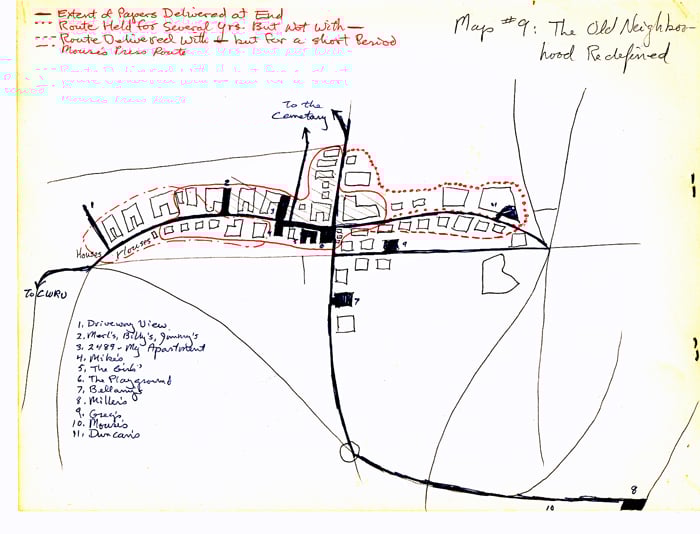 — Extent of Papers Delivered at End
Route Held for Several Yrs. But Not With —
Route Delivered With — but For a short Period
Mouse's Press Route
Map #9: The Old Neighbo-
hood Redefined
To the
Cemetary
1
2
3
4
11
9
Houses
Houses
To CWRU
7
1. Driveway View
2. Merl's, Billy's, Jimmy's
3. 2489 - My Apartment
4. Mike's
5. The Girls'
6. The Playground
7. Bellamy's
8. Miller's
9. Greg's
10. Mouse's
11. Duncan's
8
10